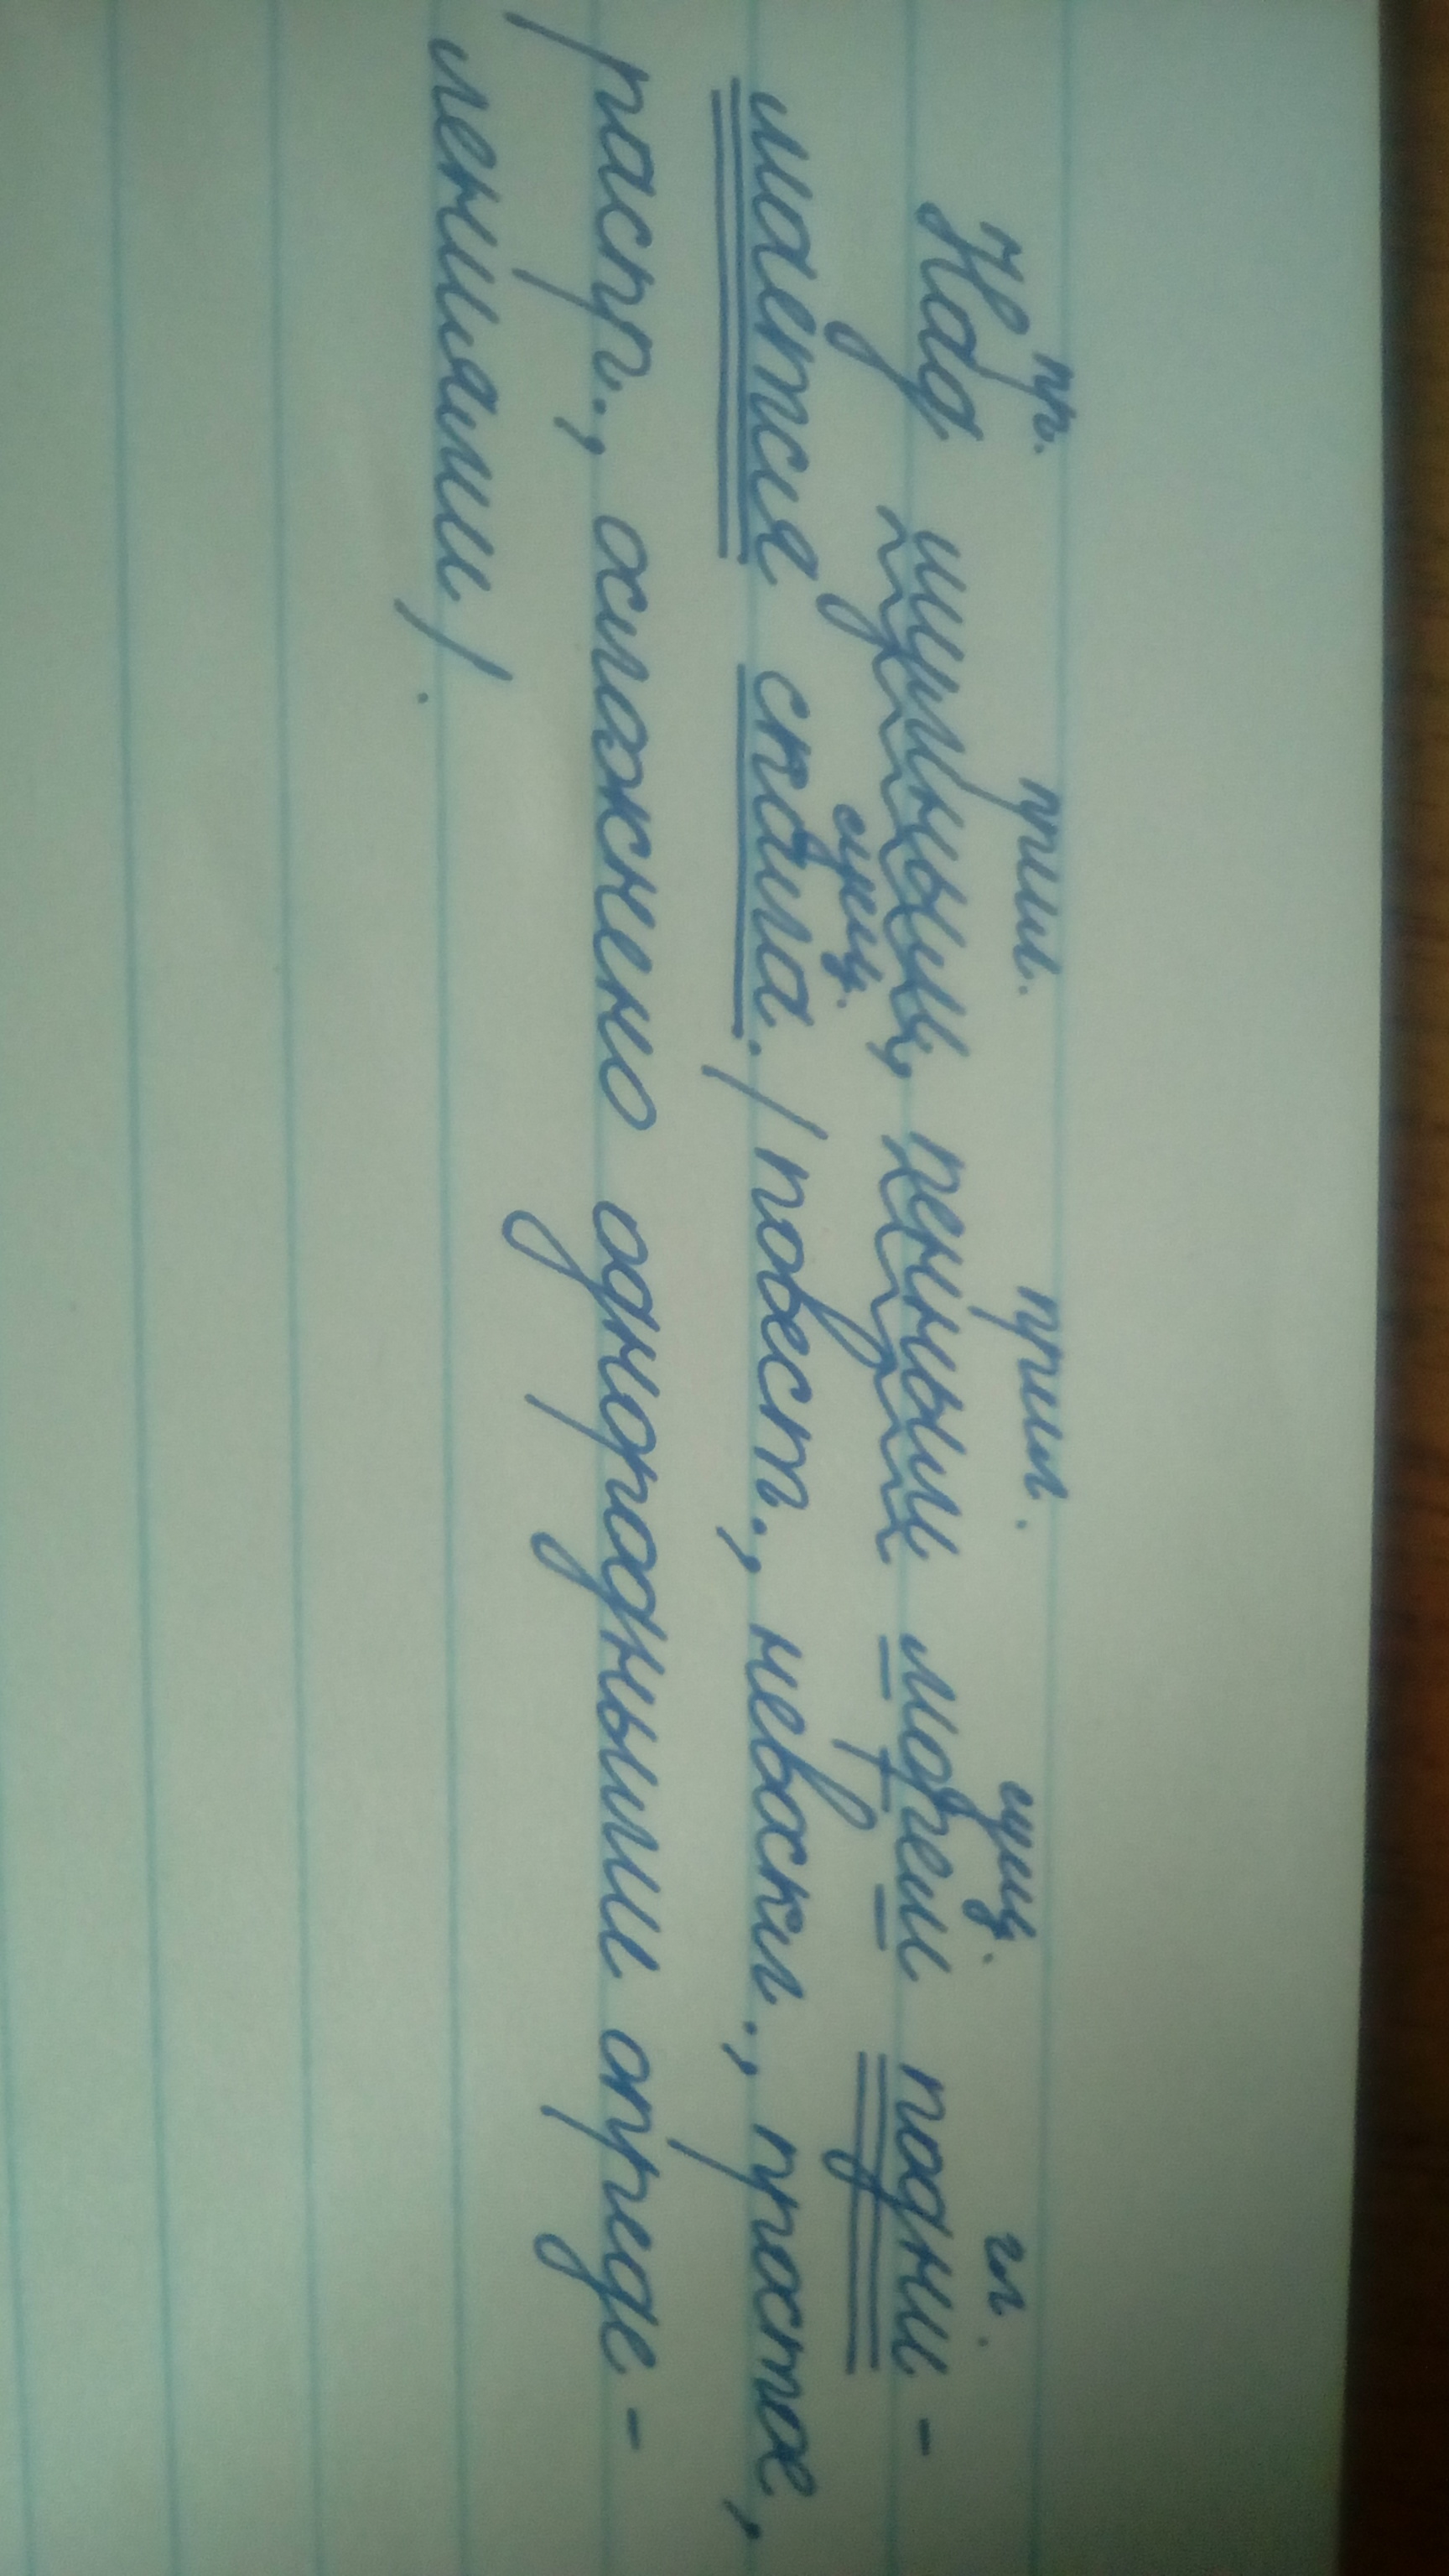 пр. прил. прил. сущ. гл.
Над шумным, пенным морем подни-
сущ.
мается скала. /повест., невоскл., простое,
распр., осложнено однородными опреде-
лениями/.